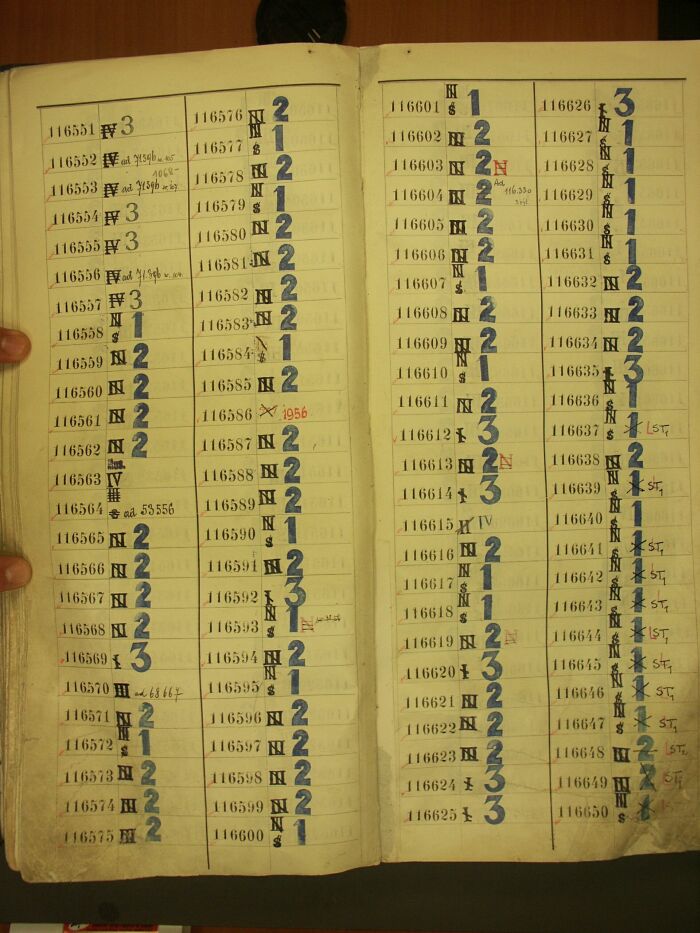 116551 IV 3
116552 IV ad 71396
1068-
116553 IV ad 71396
116554 IV 3
116555 IV 3
116556 IV ad 71396
116557 IV 3
116558 N S 1
116559 N 2
116560 N 2
116561 N 2
116562 N 2
116563 IV
116564 ad 53556
116565 N 2
116566 N 2
116567 N 2
116568 N 2
116569 I 3
116570 III ad 68667
116571 N 2
116572 N S 1
116573 N 2
116574 N 2
116575 N 2
116576 N 2
116577 N S 1
116578 N 2
116579 N S 1
116580 N 2
116581 N 2
116582 N 2
116583 N 2
116584 N S 1
116585 N 2
116586 1956
116587 N 2
116588 N 2
116589 N 2
116590 N S 1
116591 N 2
116592 I 3
116593 N S 1 N
116594 N 2
116595 N S 1
116596 N 2
116597 N 2
116598 N 2
116599 N 2
116600 N S 1
116601 N S 1
116602 N 2
116603 N 2 N
116604 N 2 Ad 116.330
116605 N 2
116606 N 2
116607 N S 1
116608 N 2
116609 N 2
116610 N S 1
116611 N 2
116612 I 3
116613 N 2 N
116614 I 3
116615 IV
116616 N 2
116617 N S 1
116618 N S 1
116619 N 2 N
116620 I 3
116621 N 2
116622 N 2
116623 N 2
116624 I 3
116625 I 3
116626 I 3
116627 N S 1
116628 N S 1
116629 N S 1
116630 N S 1
116631 N S 1
116632 N 2
116633 N 2
116634 N 2
116635 I 3
116636 N S 1
116637 N S 1 LST1
116638 N 2
116639 N S 1 ST1
116640 N S 1
116641 N S 1 ST1
116642 N S 1 ST1
116643 N S 1 ST1
116644 N S 1 LST1
116645 N S 1 ST1
116646 N S 1 ST1
116647 N S 1 ST1
116648 N 2 LST1
116649 N 2 ST1
116650 N S 1